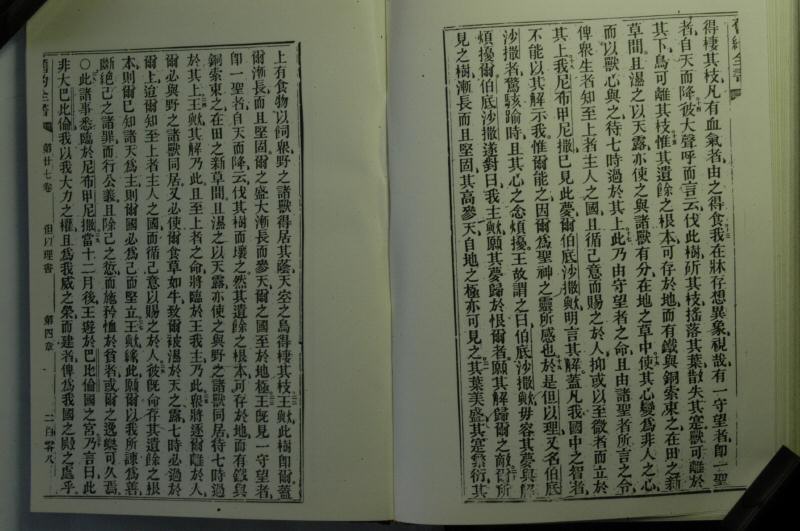 舊約全書
得棲其枝凡有血氣者由之得食我在牀存想異象視哉有一守望者即一聖
者自天而降彼大聲呼而言云伐此樹所其枝搖落其葉散失其寔獸可離於
其下鳥可離其枝惟其遺餘之根本可存於地而有鐵與銅索束之在田之新
草間且濕之以天露亦使之與諸獸有分在地之草中使其心變為非人之心
而以獸心與之待七時過於其上此乃由守望者之命且由諸聖者所言之令
俾衆生者知至上者主人之國且循己意而賜之於人抑或以至微者而立於
其上我尼布甲尼撒已見此夢爾伯底沙撒歟明言其解蓋凡我國中之智者
不能以其解示我惟爾能之因爾爲聖神之靈所感也於是但以理又名伯底
沙撒者驚駭踰時且其心之念煩擾王故謂之曰伯底沙撒歟毋容其夢與解
煩擾爾伯底沙撒遂對曰我主歟願其夢歸於恨爾者願其解歸爾之敵爾所
見之樹漸長而且堅固其高參天自地之極亦可見之其葉美盛其寔繁衍其
上有食物以飼衆野之諸獸得居其蔭天空之鳥得棲其枝王歟此樹即爾蓋
爾漸長而且堅固爾之盛大漸長而參天爾之國至於地極王既見一守望者
即一聖者自天而降云伐其樹而壞之然其遺餘之根本可存於地而有鐵與
銅索束之在田之新草間且濕之以天露亦使之與野之諸獸同居待七時過
於其上王歟其解乃此且至上者之命將臨於王我主乃此衆將逐爾離於人
爾必與野之諸獸同居又必使爾食草如牛致爾被濕於天之露七時必過於
爾上迨爾知至上者主人之國而循己意以賜之於人彼既命存其遺餘之根
本則爾已知諸天爲主則爾國必爲己而堅立王歟緣此願爾以我所諫爲善
斷絕己之諸罪而行公義且除己之愆而施矜恤於貧者或爾之逸樂可久焉
○此諸事悉臨於尼布甲尼撒當十二月後王遊於巴比倫國之宮乃言曰此
非大巴比倫我以我大力之權且爲我威之榮而建者俾爲我國之殿之處乎
舊約全書 第廿七卷 但以理書 第四章 二百零八